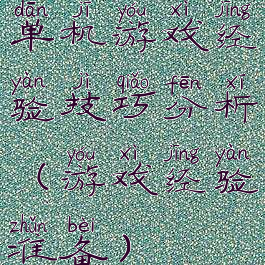 dān jī yóu xì jīng
单机游戏经
yàn jì qiǎo fēn xī
验技巧分析
yóu xì jīng yàn
（游戏经验
zhǔn bèi
准备）